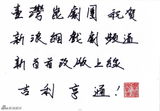 臺灣崑劇團 祝賀
新浪網戲劇頻道
新首頁改版上線
吉利亨通!